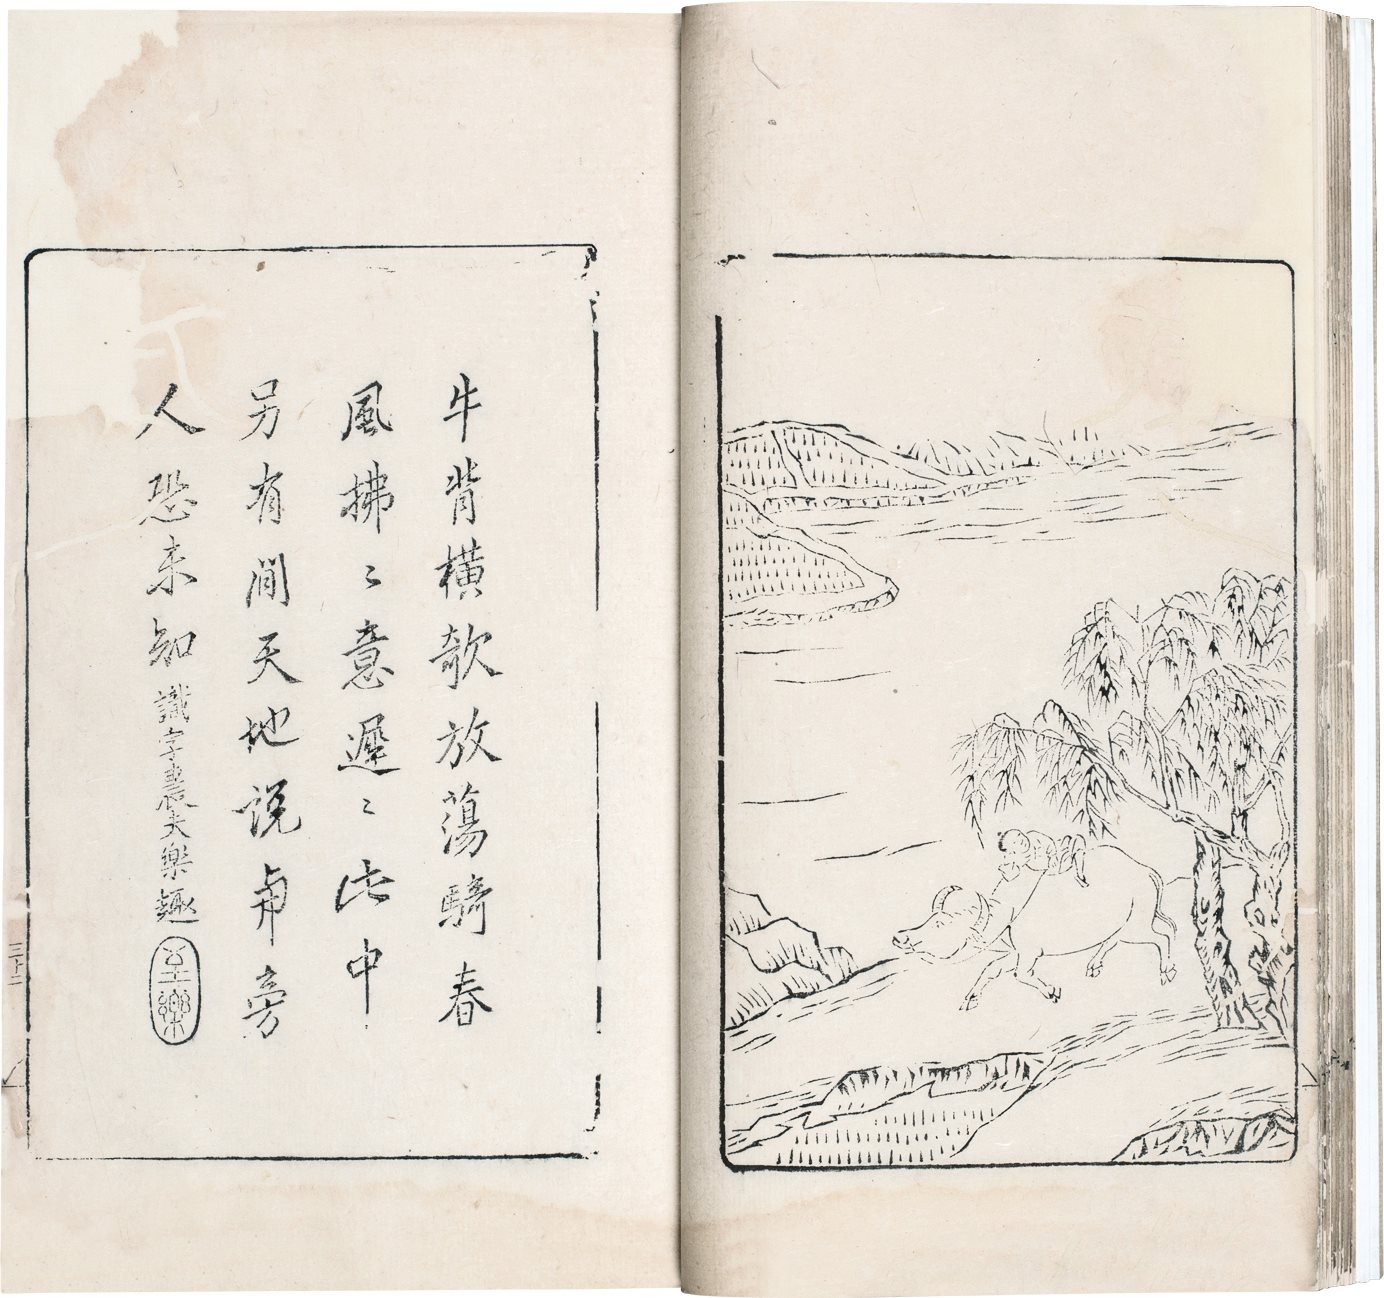 牛背橫欹放蕩騎春
風拂〻意遲〻此中
另有閒天地説與旁
人恐未知 識字農夫樂趣
至樂
三十二